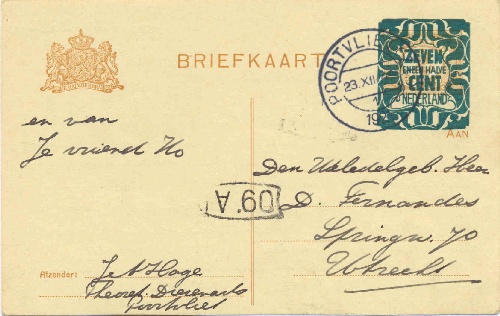 BRIEFKAART
POORTVLIET
23.XII
19
ZEVEN
EN EEN HALVE
CENT
NEDERLAND
AAN
en van
Je vriend Ko
Den Weledelgeb. Heer
D. Fernandes
Springw. 70
Utrecht
A 60
Afzender:
Poortvliet